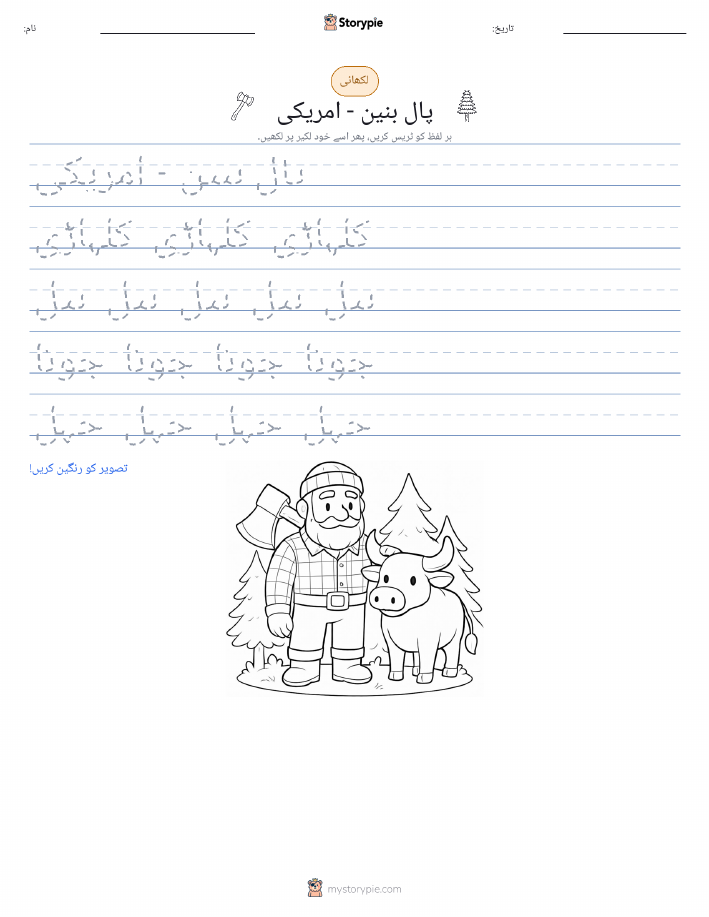 نام:
Storypie
تاریخ:
لکھائی
پال بنین - امریکی
ہر لفظ کو ٹریس کریں، پھر اسے خود لکیر پر لکھیں۔
پال بنین - امریکی
کلہاڑی کلہاڑی کلہاڑی
بیل بیل بیل بیل بیل
جوتا جوتا جوتا جوتا
جھیل جھیل جھیل جھیل
تصویر کو رنگین کریں!
mystorypie.com